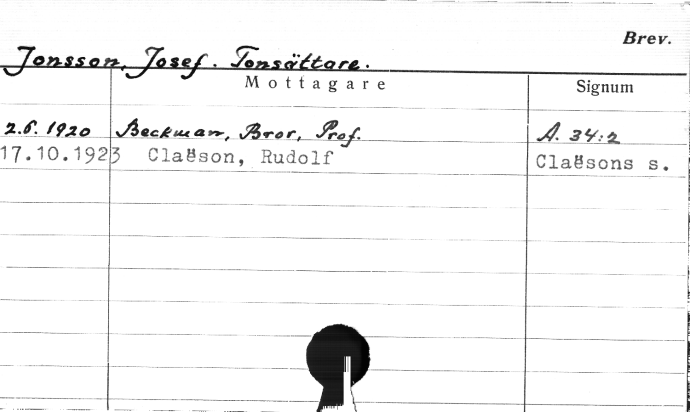 Brev.
Jonsson, Josef. Tonsättare.
Mottagare Signum
2.6. 1920 Beckman, Bror, Prof. A. 34:2
17.10.1923 Claëson, Rudolf Claësons s.